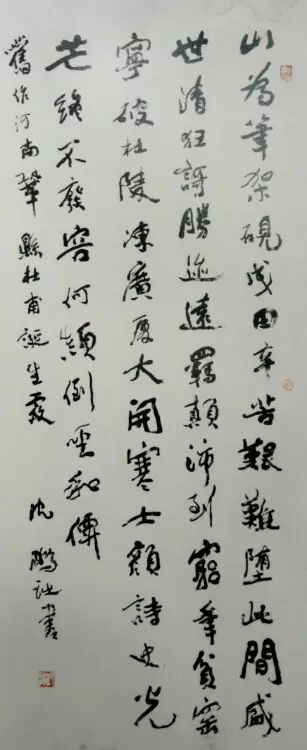 山為筆架硯成田辛苦艱難墮此間盛
世清狂謌勝迹遠羈顛沛到窮年貧窯
寧破杜陵凍廣厦大開寒士顏詩史光
芒終不廢容何顛倒聖和僊
舊作河南鞏縣杜甫誕生處 沈鵬詩并書